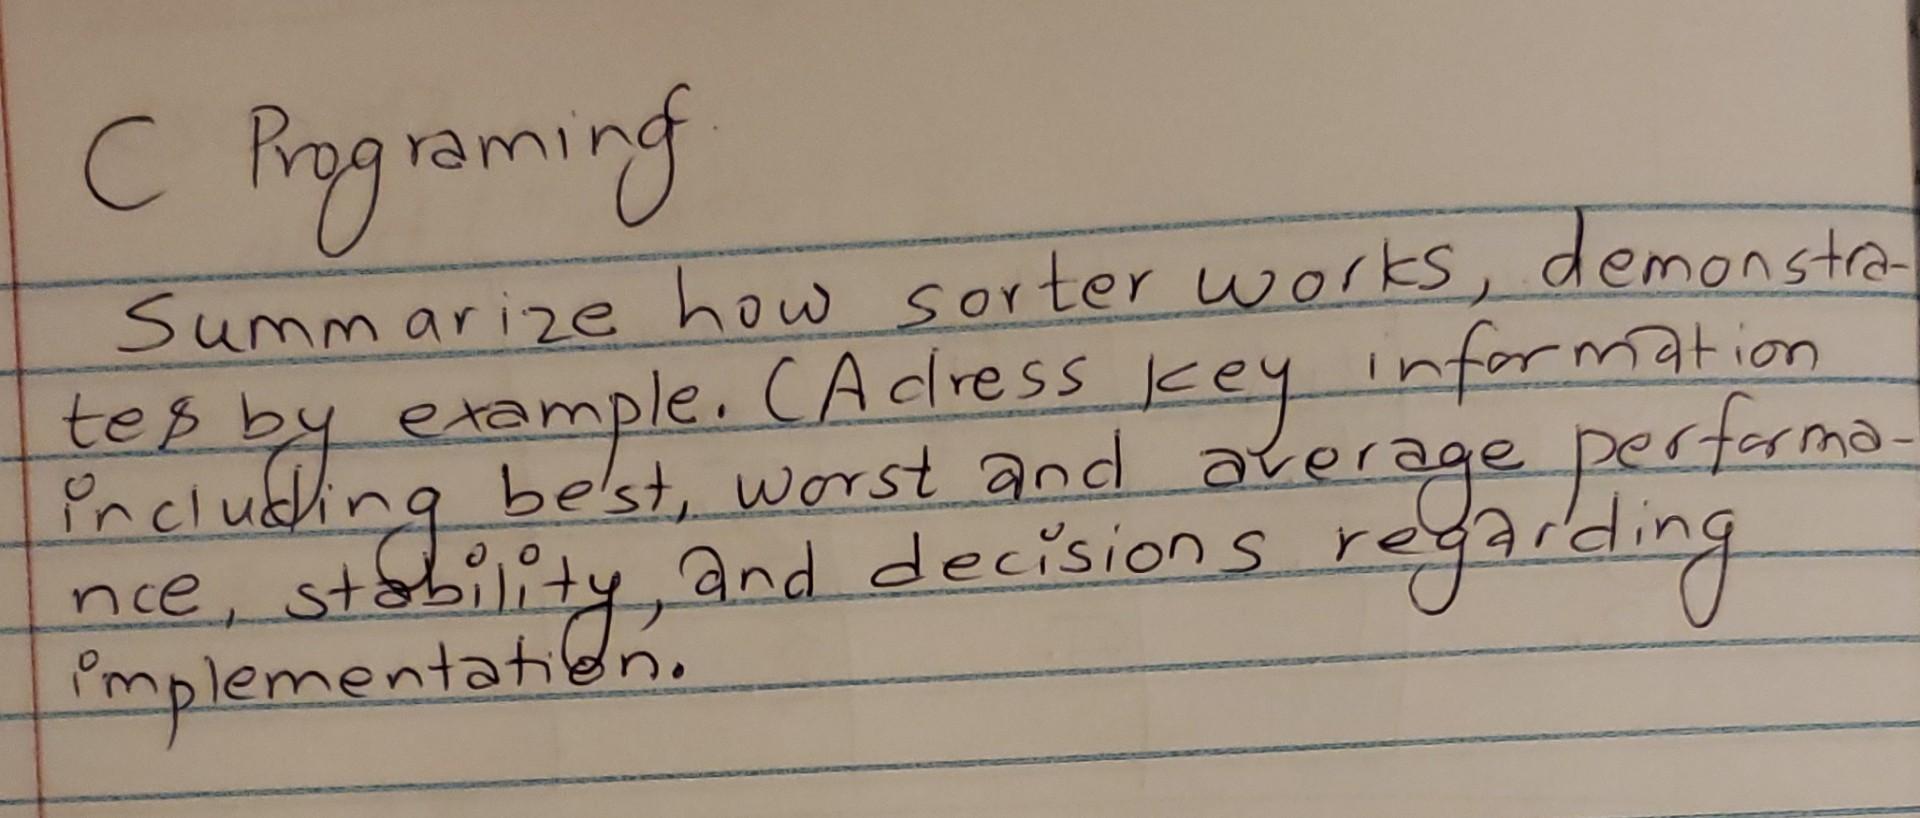 C Programing
Summarize how sorter works, demonstra-
tes by example. (Adress key information
including best, worst and average performa-
nce, stability, and decisions regarding
implementation.